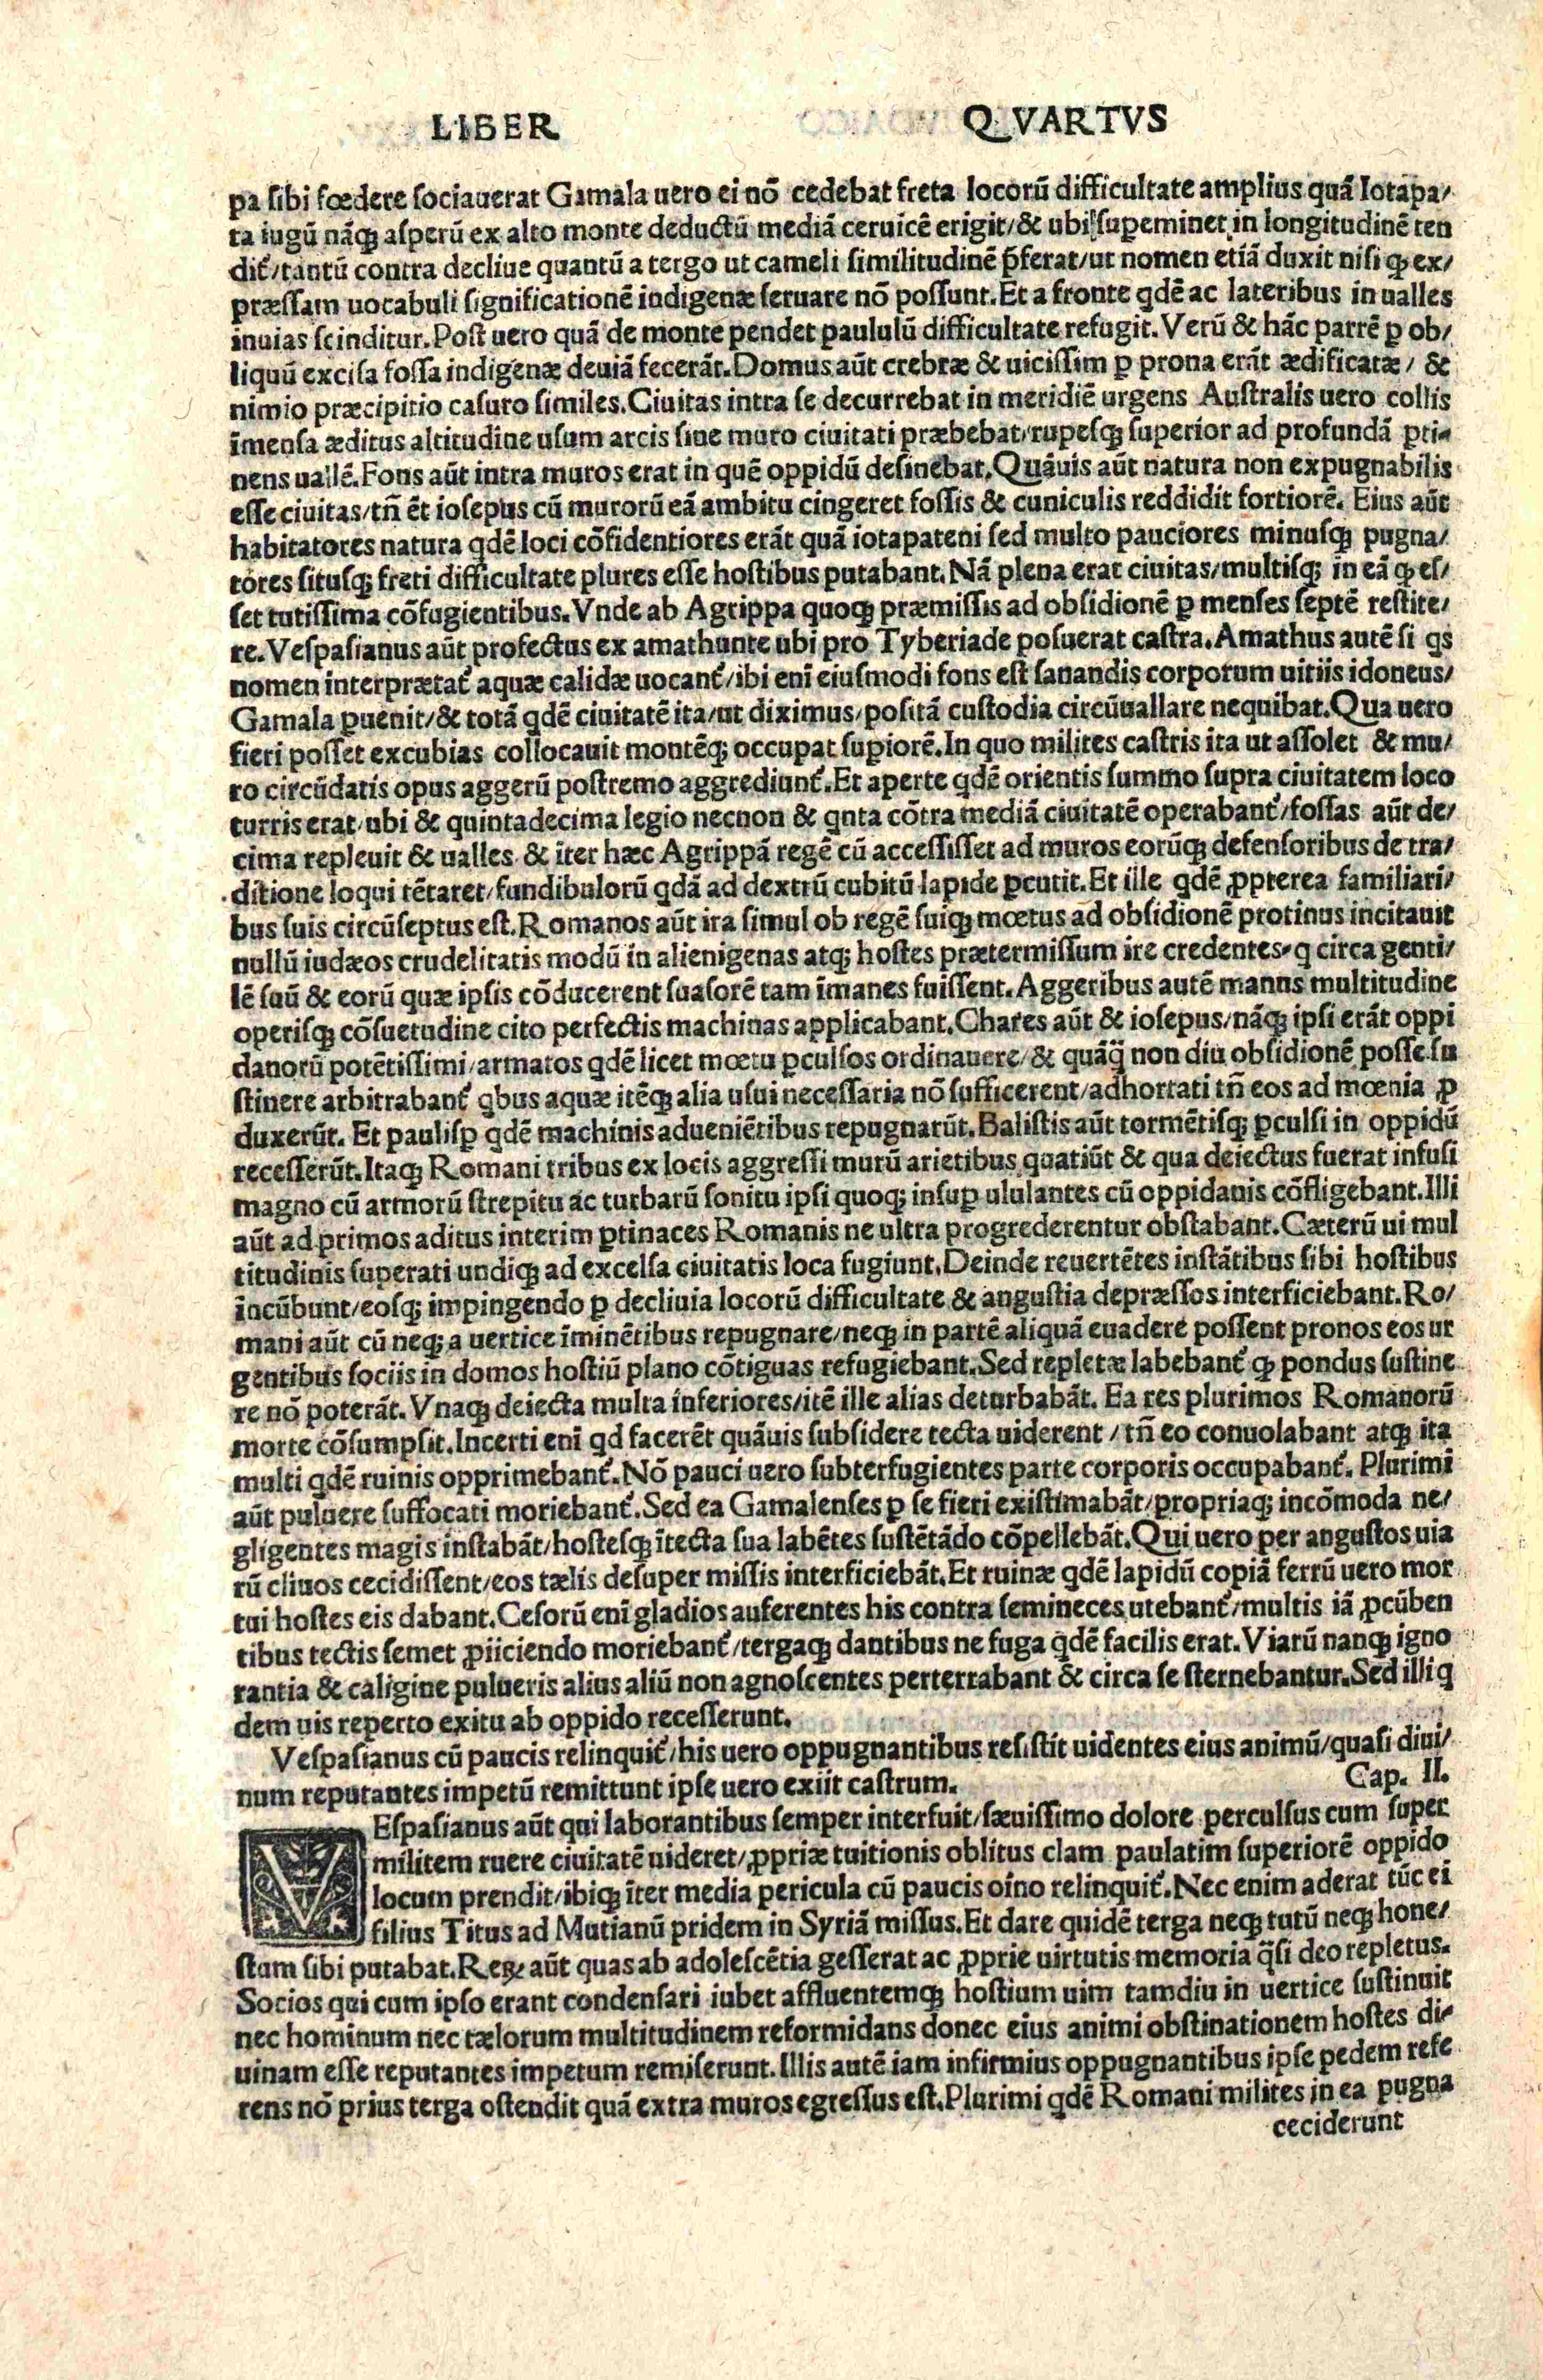 LIBER QVARTVS
pa sibi fœdere sociauerat Gamala uero ei nõ cedebat freta locorũ difficultate amplius quã Iotapa/
ta iugũ nãqꝫ asperũ ex alto monte deductũ mediã ceruicẽ erigit/& ubi supeminet in longitudinẽ ten
dit̃/tantũ contra decliue quantũ a tergo ut cameli similitudinẽ p̃ferat/ut nomen etiã duxit nisi ꝙ ex/
præssam uocabuli significationẽ indigenæ seruare nõ possunt.Et a fronte qdẽ ac lateribus in ualles
inuias scinditur.Post uero quã de monte pendet paululũ difficultate refugit.Verũ & hãc partẽ ꝑ ob/
liquũ excisa fossa indigenæ deuiã fecerãt.Domus aũt crebræ & uicissim ꝑ prona erãt ædificatæ/ &
nimio præcipitio casuro similes.Ciuitas intra se decurrebat in meridiẽ urgens Australis uero collis
ĩmensa æditus altitudine usum arcis siue muro ciuitati præbebat/rupesqꝫ superior ad profundã ꝑti-
nens uallẽ.Fons aũt intra muros erat in quẽ oppidũ desinebat.Quãuis aũt natura non expugnabilis
esse ciuitas/tñ ẽt iosepus cũ murorũ eã ambitu cingeret fossis & cuniculis reddidit fortiorẽ. Eius aũt
habitatores natura qdẽ loci cõfidentiores erãt quã iotapateni sed multo pauciores minusqꝫ pugna/
tores situsqꝫ freti difficultate plures esse hostibus putabant.Nã plena erat ciuitas/multisqꝫ in eã ꝙ es/
set tutissima cõfugientibus.Vnde ab Agrippa quoqꝫ præmissis ad obsidionẽ ꝑ menses septẽ restite/
re.Vespasianus aũt profectus ex amathunte ubi pro Tyberiade posuerat castra.Amathus autẽ si qs
nomen interprætat̃ aquæ calidæ uocant̃/ibi enĩ eiusmodi fons est sanandis corporum uitiis idoneus/
Gamala ꝑuenit/& totã qdẽ ciuitatẽ ita/ut diximus/positã custodia circũuallare nequibat.Qua uero
fieri posset excubias collocauit montẽqꝫ occupat suꝑiorẽ.In quo milites castris ita ut assolet & mu/
ro circũdatis opus aggerũ postremo aggrediunt̃.Et aperte qdẽ orientis summo supra ciuitatem loco
turris erat/ubi & quintadecima legio necnon & qnta cõtra mediã ciuitatẽ operabant̃/fossas aũt de/
cima repleuit & ualles & ĩter hæc Agrippã regẽ cũ accessisset ad muros eorũqꝫ defensoribus de tra/
ditione loqui tẽtaret/fundibulorũ qdã ad dextrũ cubitũ lapide ꝑcutit.Et ille qdẽ ꝓpterea familiari/
bus suis circũseptus est.Romanos aũt ira simul ob regẽ suiqꝫ mœtus ad obsidionẽ protinus incitauit
nullũ iudæos crudelitatis modũ in alienigenas atqꝫ hostes prætermissum ire credentes/q circa genti/
lẽ suũ & eorũ quæ ipsis cõducerent suasorẽ tam ĩmanes fuissent.Aggeribus autẽ manus multitudine
operisqꝫ cõsuetudine cito perfectis machinas applicabant.Chares aũt & iosepus/nãqꝫ ipsi erãt oppi
danorũ potẽtissimi/armatos qdẽ licet mœtu ꝑculsos ordinauere/& quãq̃ non diu obsidionẽ posse su
stinere arbitrabant̃ qbus aquæ itẽqꝫ alia usui necessaria nõ sufficerent/adhortati tñ eos ad mœnia ꝓ
duxerũt. Et paulisꝑ qdẽ machinis adueniẽtibus repugnarũt.Balistis aũt tormẽtisqꝫ ꝑculsi in oppidũ
recesserũt.Itaqꝫ Romani tribus ex locis aggressi murũ arietibus quatiũt & qua deiectus fuerat infusi
magno cũ armorũ strepitu ac turbarũ sonitu ipsi quoqꝫ insuꝑ ululantes cũ oppidanis cõfligebant.Illi
aũt ad primos aditus interim ꝑtinaces Romanis ne ultra progrederentur obstabant.Cæterũ ui mul
titudinis superati undiqꝫ ad excelsa ciuitatis loca fugiunt.Deinde reuertẽtes instãtibus sibi hostibus
incũbunt/eosqꝫ impingendo ꝑ decliuia locorũ difficultate & angustia depræssos interficiebant.Ro/
mani aũt cũ neqꝫ a uertice ĩminẽtibus repugnare/neqꝫ in partẽ aliquã euadere possent pronos eos ur
gentibus sociis in domos hostiũ plano cõtiguas refugiebant.Sed repletæ labebant̃ ꝙ pondus sustine
re nõ poterãt.Vnaqꝫ deiecta multa inferiores/itẽ ille alias deturbabãt. Ea res plurimos Romanorũ
morte cõsumpsit.Incerti enĩ qd facerẽt quãuis subsidere tecta uiderent/tñ eo conuolabant atqꝫ ita
multi qdẽ ruinis opprimebant̃.Nõ pauci uero subterfugientes parte corporis occupabant̃. Plurimi
aũt puluere suffocati moriebant̃.Sed ea Gamalenses ꝑ se fieri existimabãt/propriaqꝫ incõmoda ne/
gligentes magis instabãt/hostesqꝫ ĩtecta sua labẽtes sustẽtãdo cõpellebãt.Qui uero per angustos uia
rũ cliuos cecidissent/eos tælis desuper missis interficiebãt.Et ruinæ qdẽ lapidũ copiã ferrũ uero mor
tui hostes eis dabant.Cesorũ enĩ gladios auferentes his contra semineces utebant̃/multis iã ꝓcũben
tibus tectis semet ꝓiiciendo moriebant̃/tergaqꝫ dantibus ne fuga qdẽ facilis erat.Viarũ nanqꝫ igno
rantia & caligine pulueris alius aliũ non agnoscentes perterrabant & circa se sternebantur.Sed illi q
dem uis reperto exitu ab oppido recesserunt.
Vespasianus cũ paucis relinquit̃/his uero oppugnantibus resistit uidentes eius animũ/quasi diui/
num reputantes impetũ remittunt ipse uero exiit castrum. Cap. II.
VEspasianus aũt qui laborantibus semper interfuit/sæuissimo dolore perculsus cum super
militem ruere ciuitatẽ uideret/ꝓpriæ tuitionis oblitus clam paulatim superiorẽ oppido
locum prendit/ibiqꝫ ĩter media pericula cũ paucis oĩno relinquit̃.Nec enim aderat tũc ei
filius Titus ad Mutianũ pridem in Syriã missus.Et dare quidẽ terga neqꝫ tutũ neqꝫ hone/
stum sibi putabat.Reꝝ aũt quas ab adolescẽtia gesserat ac ꝓprie uirtutis memoria q̃si deo repletus.
Socios qui cum ipso erant condensari iubet affluentemqꝫ hostium uim tamdiu in uertice sustinuit
nec hominum nec tælorum multitudinem reformidans donec eius animi obstinationem hostes di/
uinam esse reputantes impetum remiserunt.Illis autẽ iam infirmius oppugnantibus ipse pedem refe
rens nõ prius terga ostendit quã extra muros egressus est.Plurimi qdẽ Romani milites in ea pugna
ceciderunt